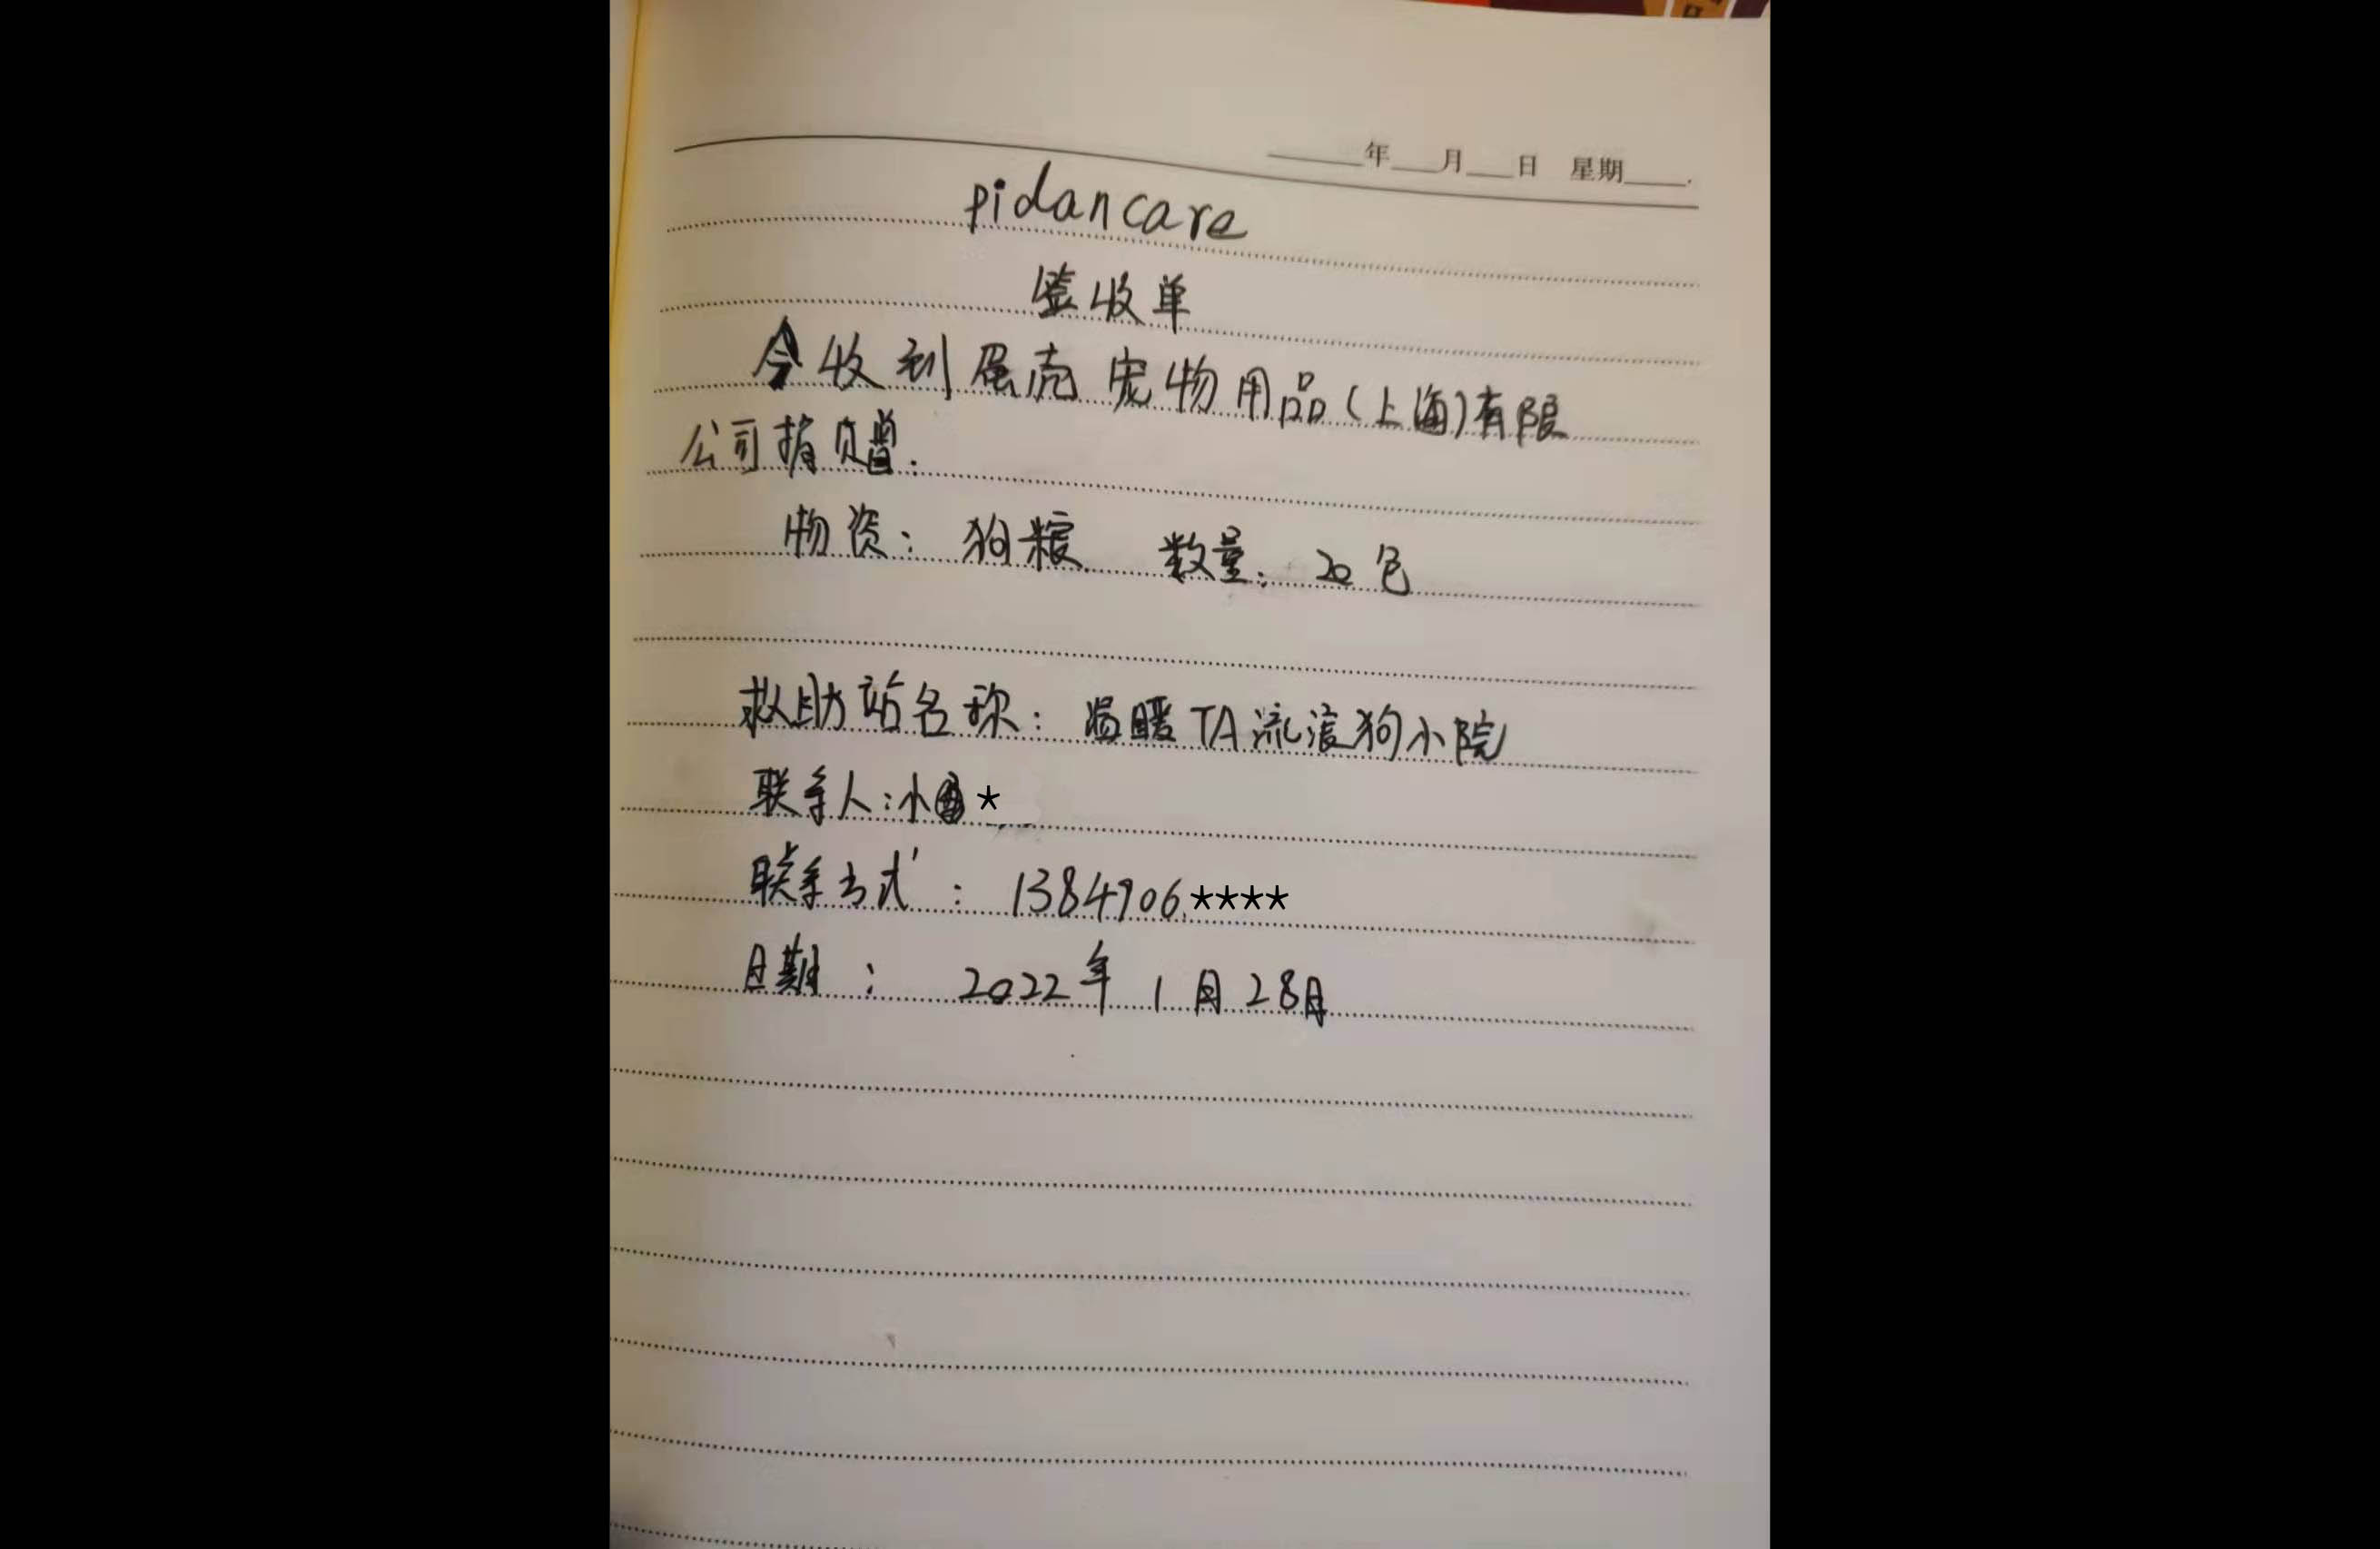 ____年___月___日 星期____.
pidancare
签收单
今收到蛋壳宠物用品(上海)有限
公司捐赠.
物资: 狗粮 数量: 20包
救助站名称: 温暖TA流浪狗小院
联系人:小*
联系方式: 1384906****
日期: 2022年1月28日